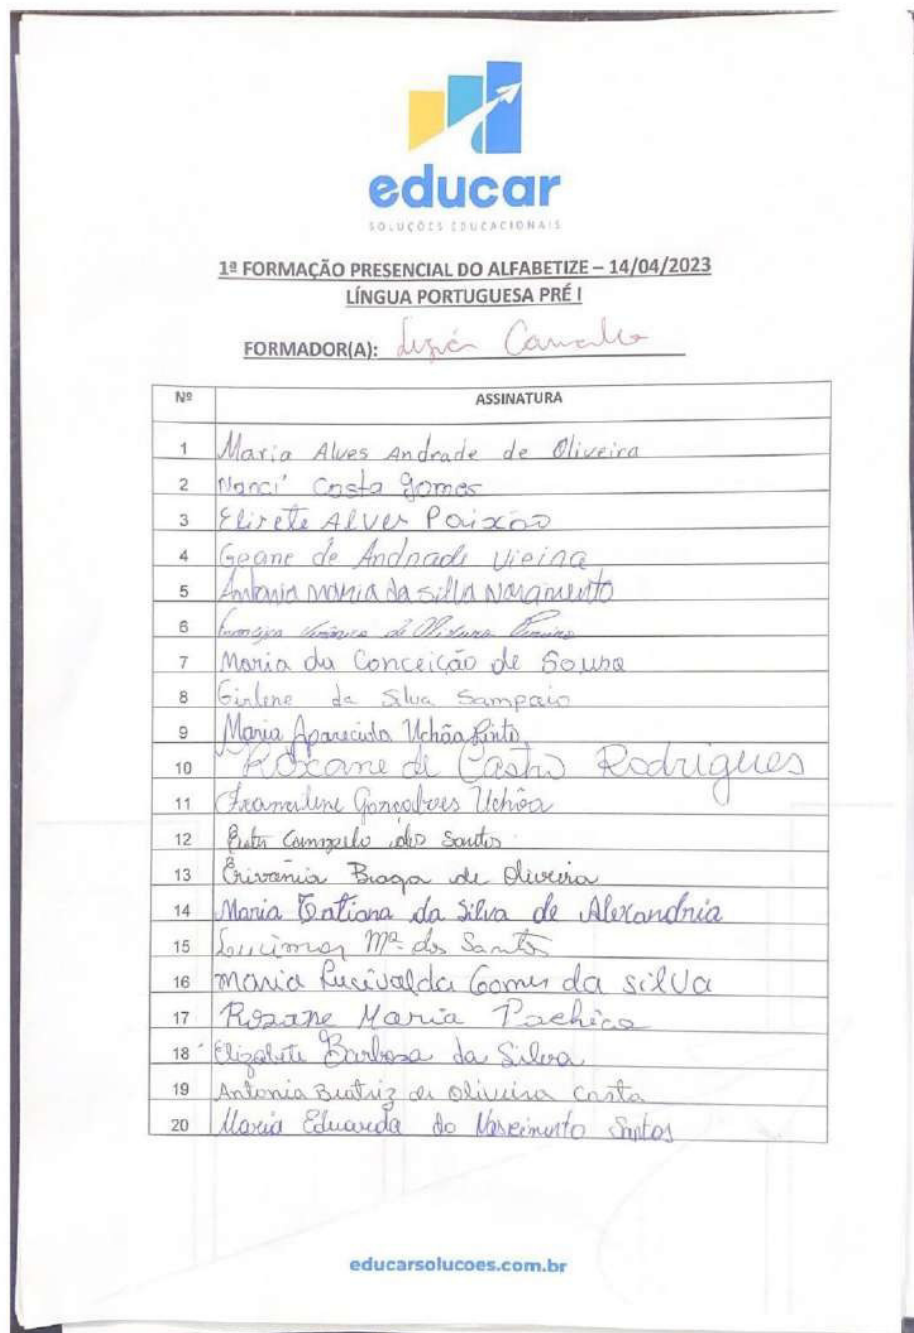 educar
SOLUÇÕES EDUCACIONAIS
1ª FORMAÇÃO PRESENCIAL DO ALFABETIZE – 14/04/2023
LÍNGUA PORTUGUESA PRÉ I
FORMADOR(A): Carvalho
Nº ASSINATURA
1 Maria Alves Andrade de Oliveira
2 Nanci Costa Gomes
3 Elirete Alves Paixão
4 Geane de Andrade Vieira
5 Antonia Maria da Silva Nascimento
6 de
7 Maria da Conceição de Sousa
8 Girlene da Silva Sampaio
9 Maria Aparecida Uchôa Pinto
10 Roxane de Castro Rodrigues
11 Gonçalves Uchôa
12 Campelo dos Santos
13 Erivania Braga de Oliveira
14 Maria Tatiana da Silva de Alexandria
15 Lucimar Mª dos Santos
16 Maria Lucivalda Gomes da Silva
17 Rozane Maria Pacheco
18 Elizabete Barbosa da Silva
19 Antonia Beatriz de Oliveira Costa
20 Maria Eduarda do Nascimento Santos
educarsolucoes.com.br